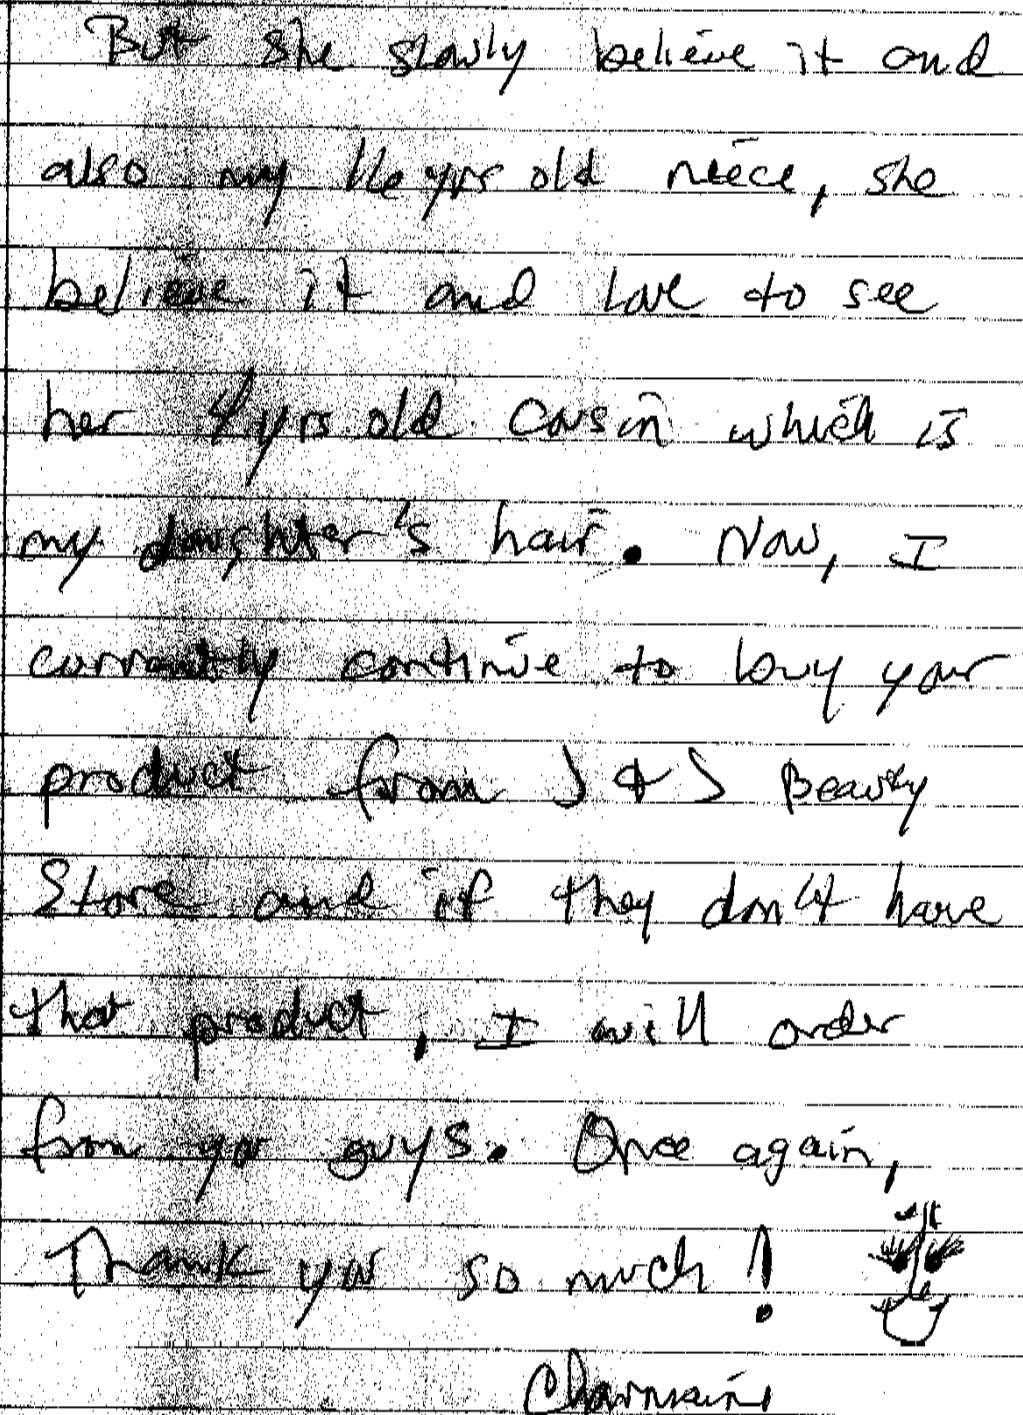 But she slowly believe it and
also my 16 yrs old niece, she
believe it and love to see
her 4 yrs old cousin which is
my daughter's hair. Now, I
currently continue to buy your
product from J & J Beauty
Store and if they don't have
that product, I will order
from you guys. Once again,
Thank you so much!
Charmaine